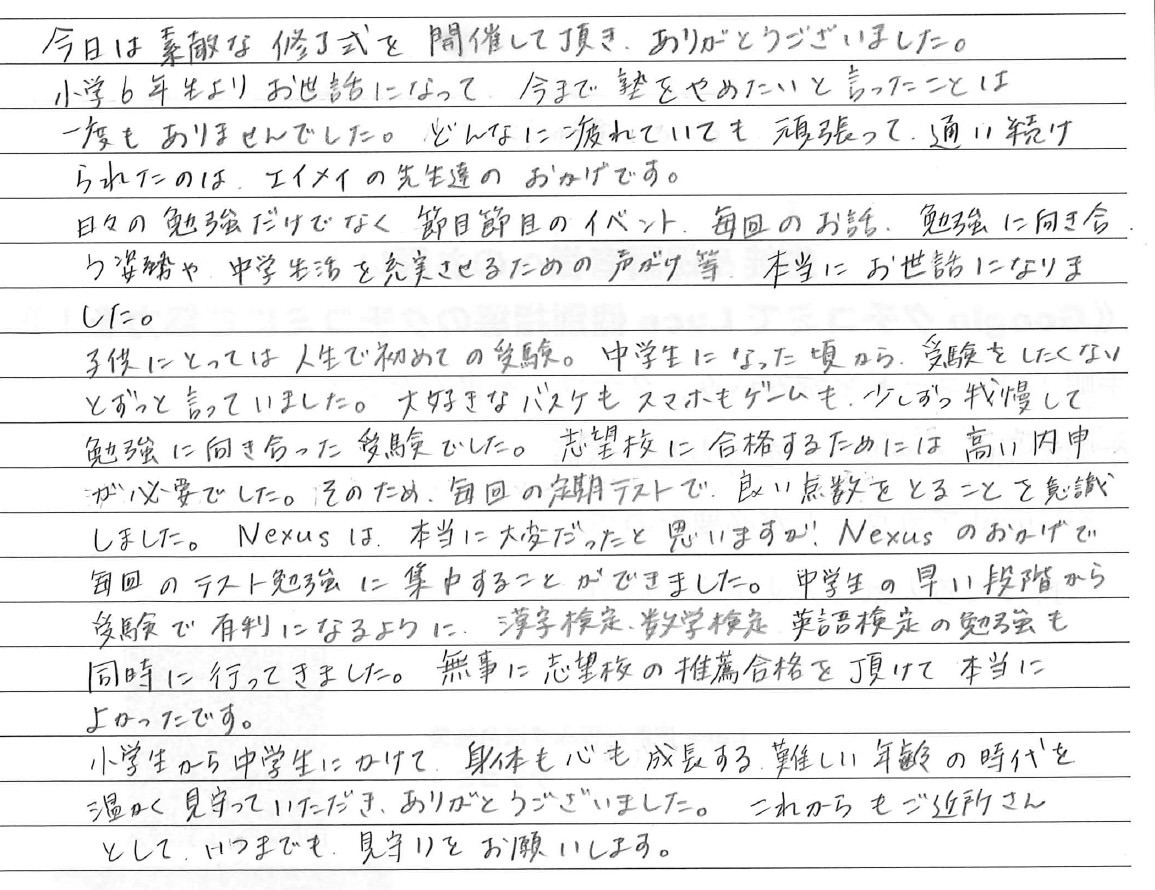 今日は素敵な修了式を開催して頂き、ありがとうございました。
小学6年生よりお世話になって、今まで塾をやめたいと言ったことは
一度もありませんでした。どんなに疲れていても頑張って、通い続け
られたのは、エイメイの先生達のおかげです。
日々の勉強だけでなく節目節目のイベント、毎回のお話、勉強に向き合
う姿勢や、中学生活を充実させるための声がけ等、本当にお世話になりま
した。
子供にとっては人生で初めての受験。中学生になった頃から、受験をしたくない
とずっと言っていました。大好きなバスケもスマホもゲームも、少しずつ我慢して
勉強に向き合った受験でした。志望校に合格するためには高い内申
が必要でした。そのため、毎回の定期テストで、良い点数をとることを意識
しました。Nexusは、本当に大変だったと思いますが、Nexusのおかげで
毎回のテスト勉強に集中することができました。中学生の早い段階から
受験で有利になるように、漢字検定、数学検定、英語検定の勉強も
同時に行ってきました。無事に志望校の推薦合格を頂けて本当に
よかったです。
小学生から中学生にかけて、身体も心も成長する、難しい年齢の時代を
温かく見守っていただき、ありがとうございました。これからもご近所さん
として、いつまでも、見守りをお願いします。